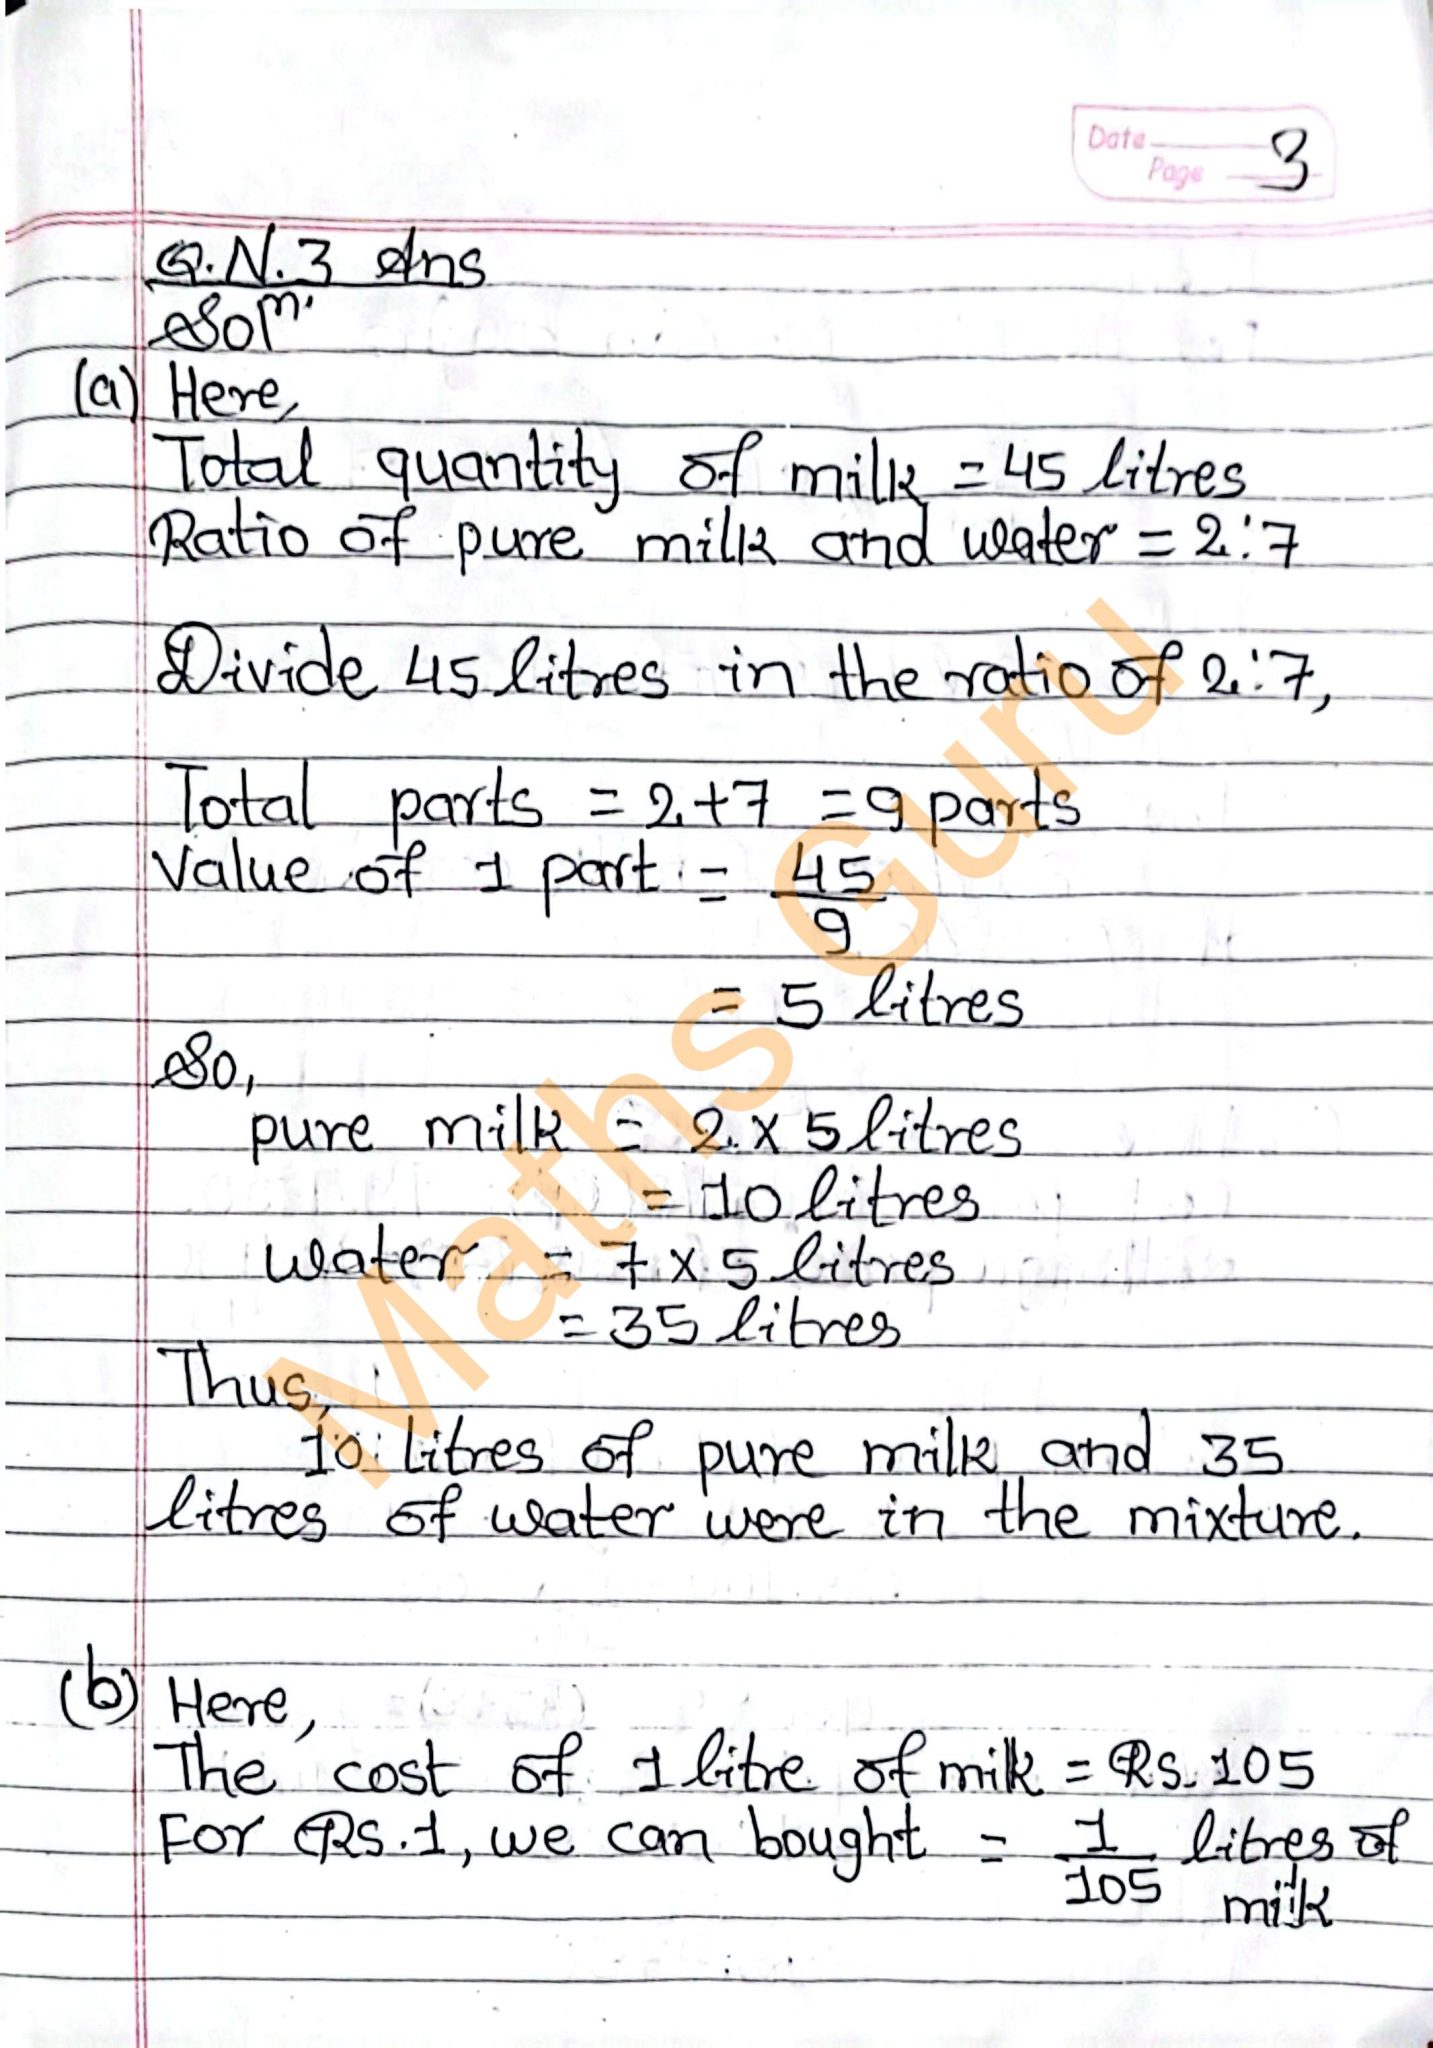 Date
Page 3
Q.N.3 Ans
Solⁿ.
(a) Here,
Total quantity of milk = 45 litres
Ratio of pure milk and water = 2:7
Divide 45 litres in the ratio of 2:7,
Total parts = 2+7 = 9 parts
Value of 1 part = 45/9
= 5 litres
So,
pure milk = 2 × 5 litres
= 10 litres
water = 7 × 5 litres
= 35 litres
Thus,
10 litres of pure milk and 35
litres of water were in the mixture.
(b) Here,
The cost of 1 litre of milk = Rs. 105
For Rs. 1, we can bought = 1/105 litres of
milk
Maths Guru